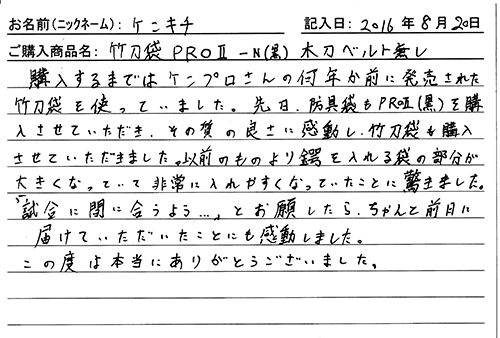 お名前(ニックネーム): ケンキチ 記入日: 2016年8月20日
ご購入商品名: 竹刀袋PROⅡ-N(黒) 木刀ベルト無し
購入するまではケンプロさんの何年か前に発売された
竹刀袋を使っていました。先日、防具袋もPROⅡ(黒)を購
入させていただき、その質の良さに感動し、竹刀袋も購入
させていただきました。以前のものより鍔を入れる袋の部分が
大きくなっていて非常に入れやすくなっていたことに驚きました。
「試合に間に合うよう…」とお願したら、ちゃんと前日に
届けていただいたことにも感動しました。
この度は本当にありがとうございました。